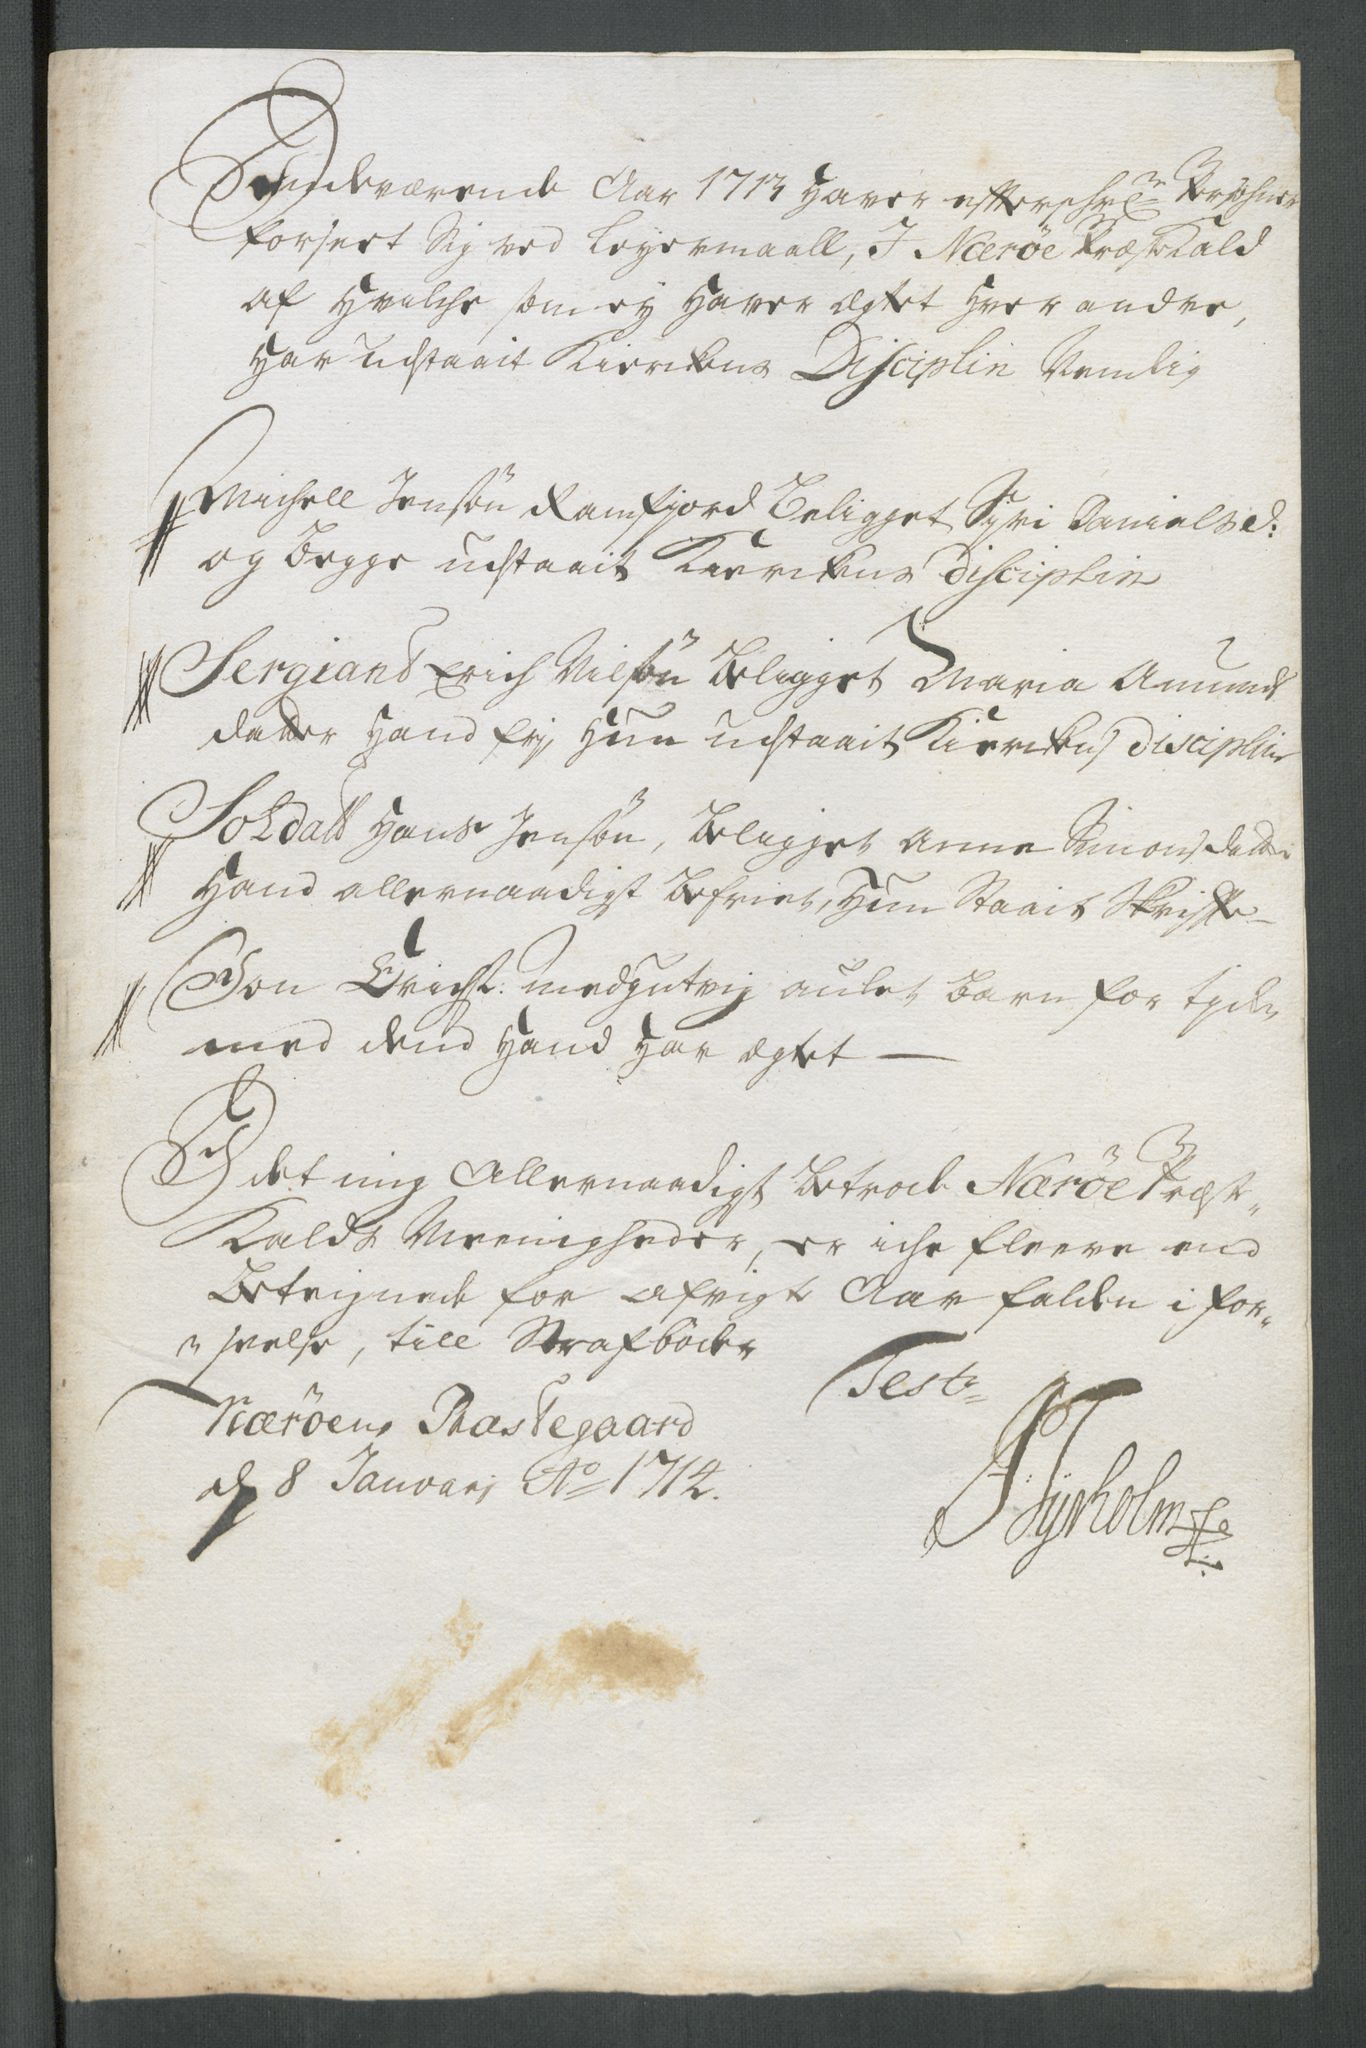 Indeværende Aar 1713 Haver efterschr: Persohner
forseet Sig ved Leyermaall, I Nærøe Præste Kald
af Hvilche som ey Haver ægtet Hver andre,
Har udstaait Kierkens Disciplin Nemlig
Michell Jensøn Ramfjord Beligget Syri Daniels d:
og begge udstaait Kierkens Disciplin
Sergiant Erich Nilsøn Beligget Maria Amunds
datter Hand frj Hun udstaait Kierkens Disciplin
Soldatt Hans Jensøn, Beligget Anne Simonsdatter
Hand allernaadigst Befriet, Hun Staait Skriffte
Jon Erichs: avlet Barn for tyden
med dend Hand Har ægtet —
I det mig Allernaadigst Betrode Nærøe Præste
Kalds Meenigheder, er iche fleere end
Betegnede for afvigt Aar falden i for-
seelse, till Strafbøder
Test:
Nærøens Præstegaard
d 8 Januarij Ao 1714.
Tyrholm